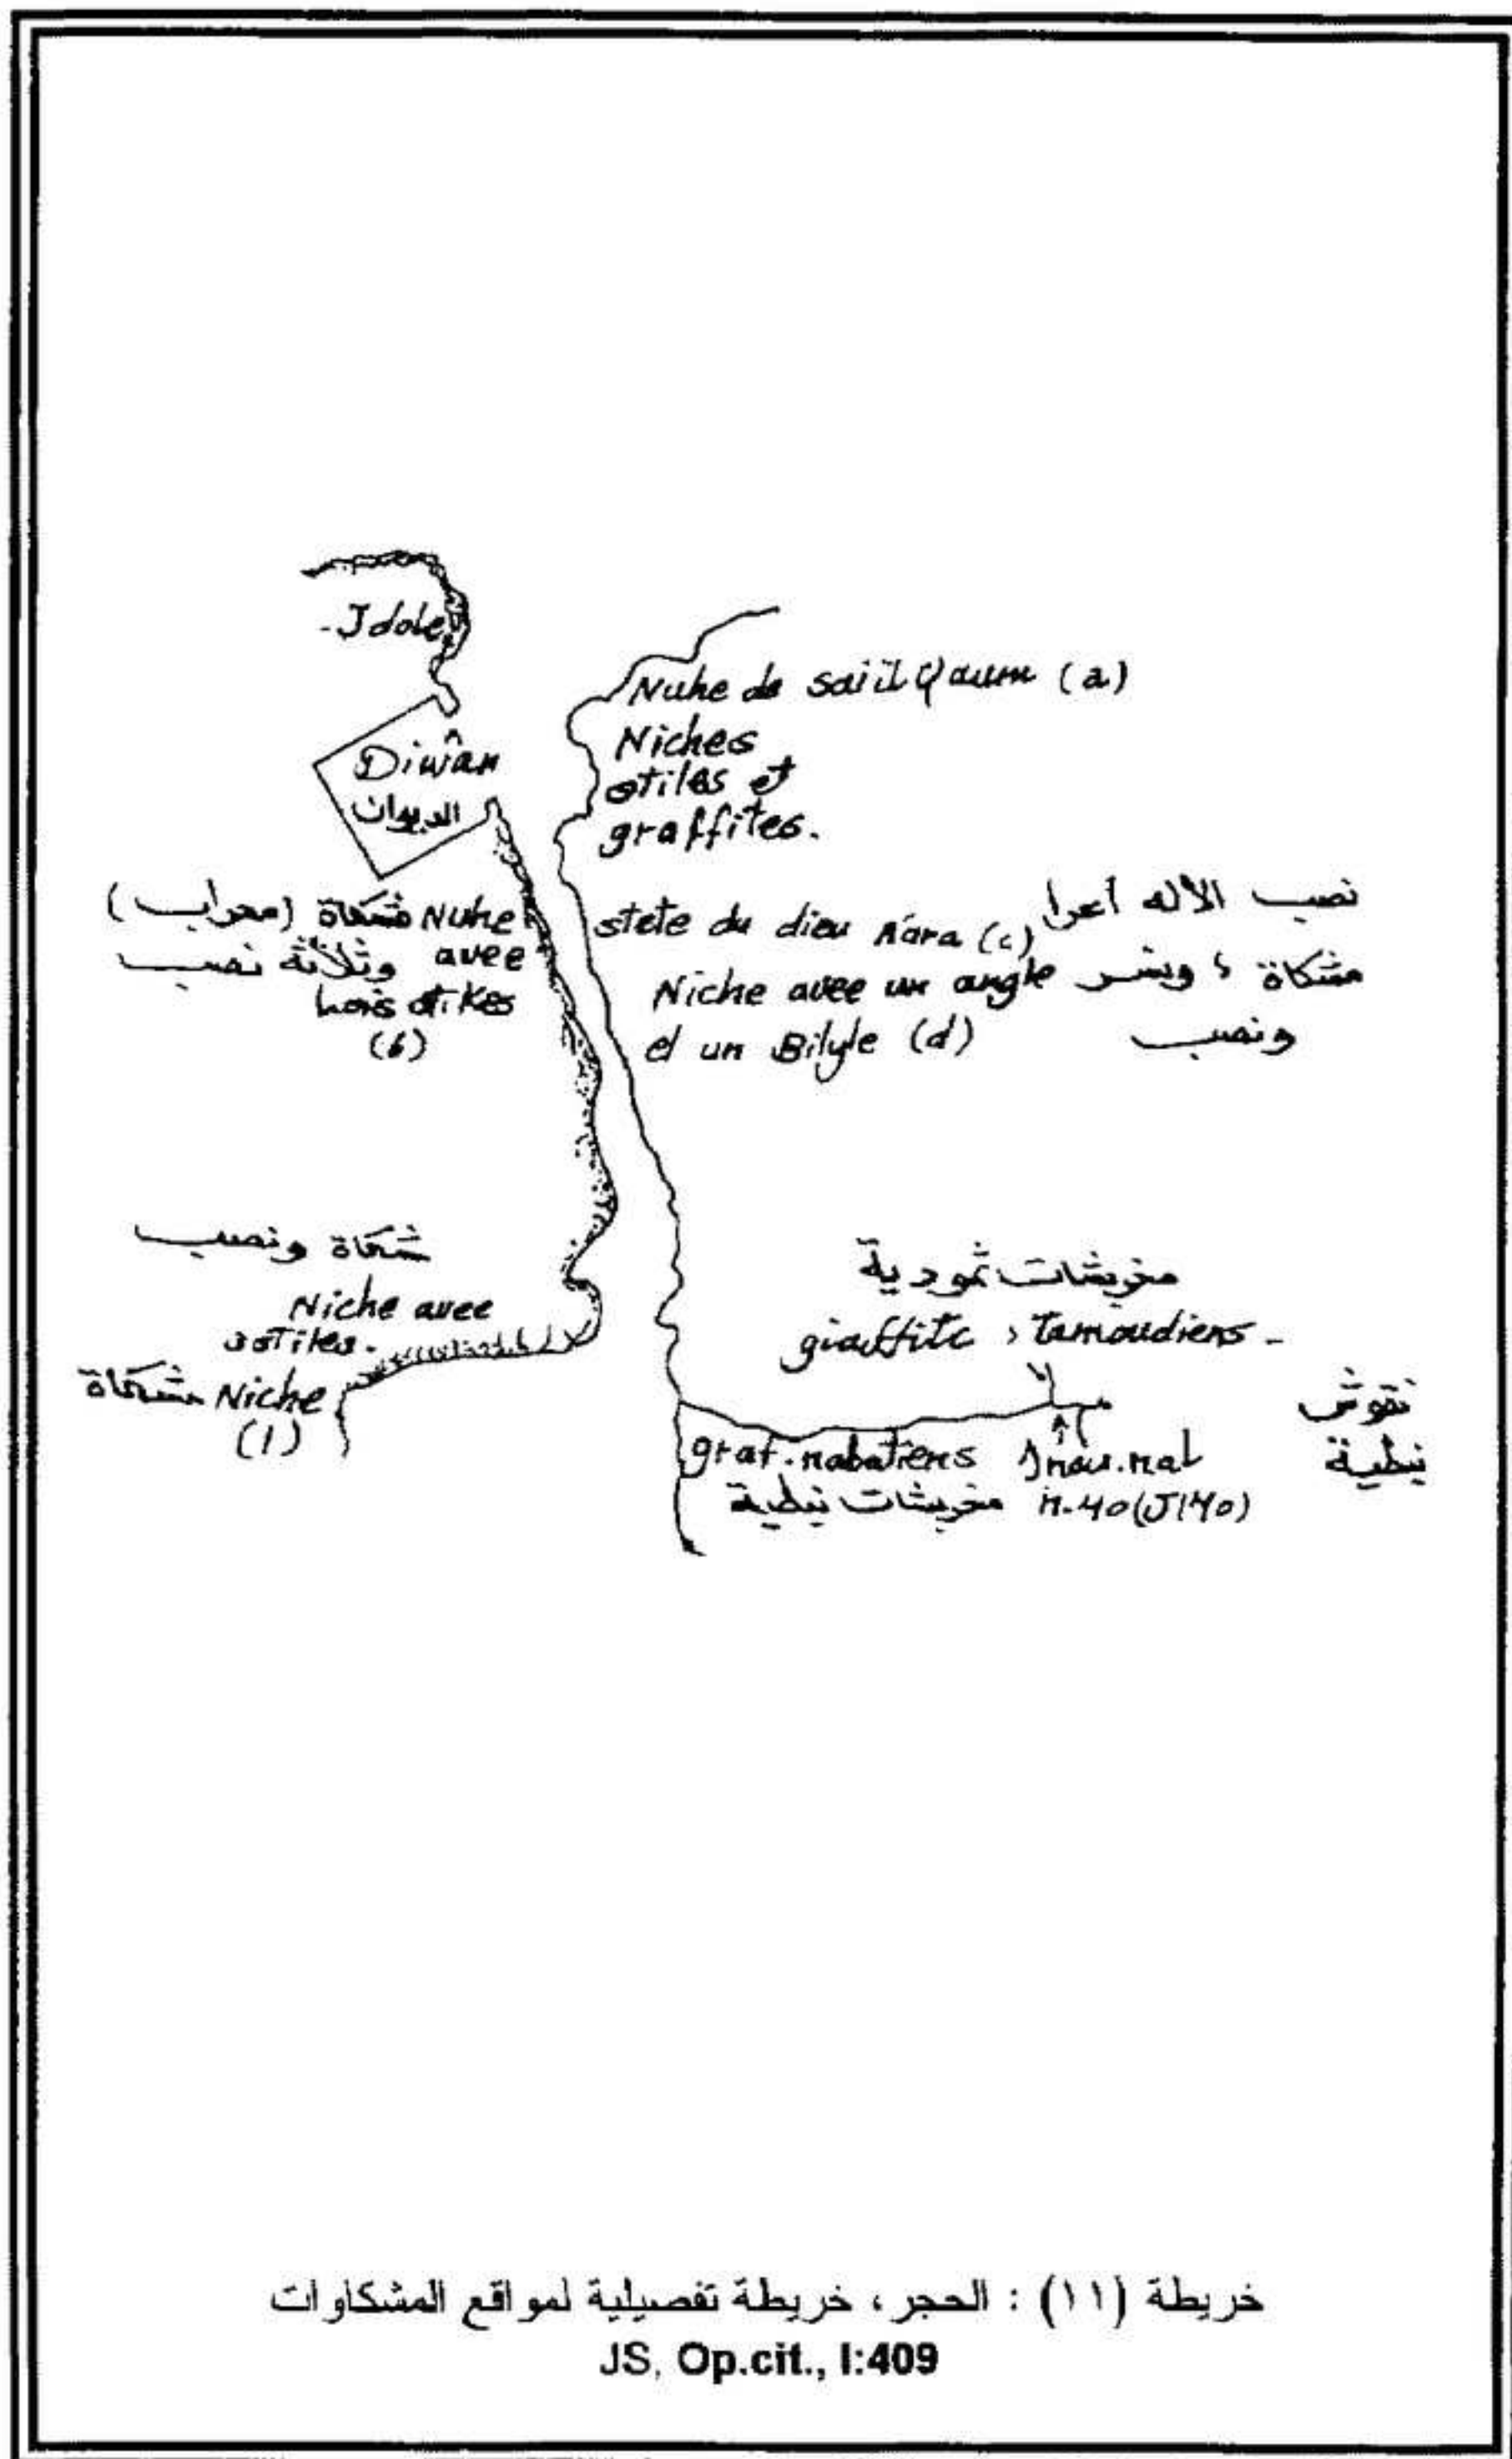 - Idole
Nuhe de saiil Qaum (a)
Niches
stiles et
graffites.
Diwân
الديوان
مشكاة (محراب) Nuhe
وثلاثة نصب avee
hois stikes
(b)
stete du dieu Aára (c) نصب الاله أعرا
Niche avee un angle مشكاة ؛ ونسر
et un Bilyle (d) ونصب
مشكاة ونصب
Niche avee
3 stiles.
مشكاة Niche
(l)
مخربشات ثمودية
giaffitc , tamoudiens -
نقوش
نبطية
graf. nabatiens
مخربشات نبطية n. 40 (J140)
خريطة (١١) : الحجر ، خريطة تفصيلية لمواقع المشكاوات
JS, Op.cit., I:409